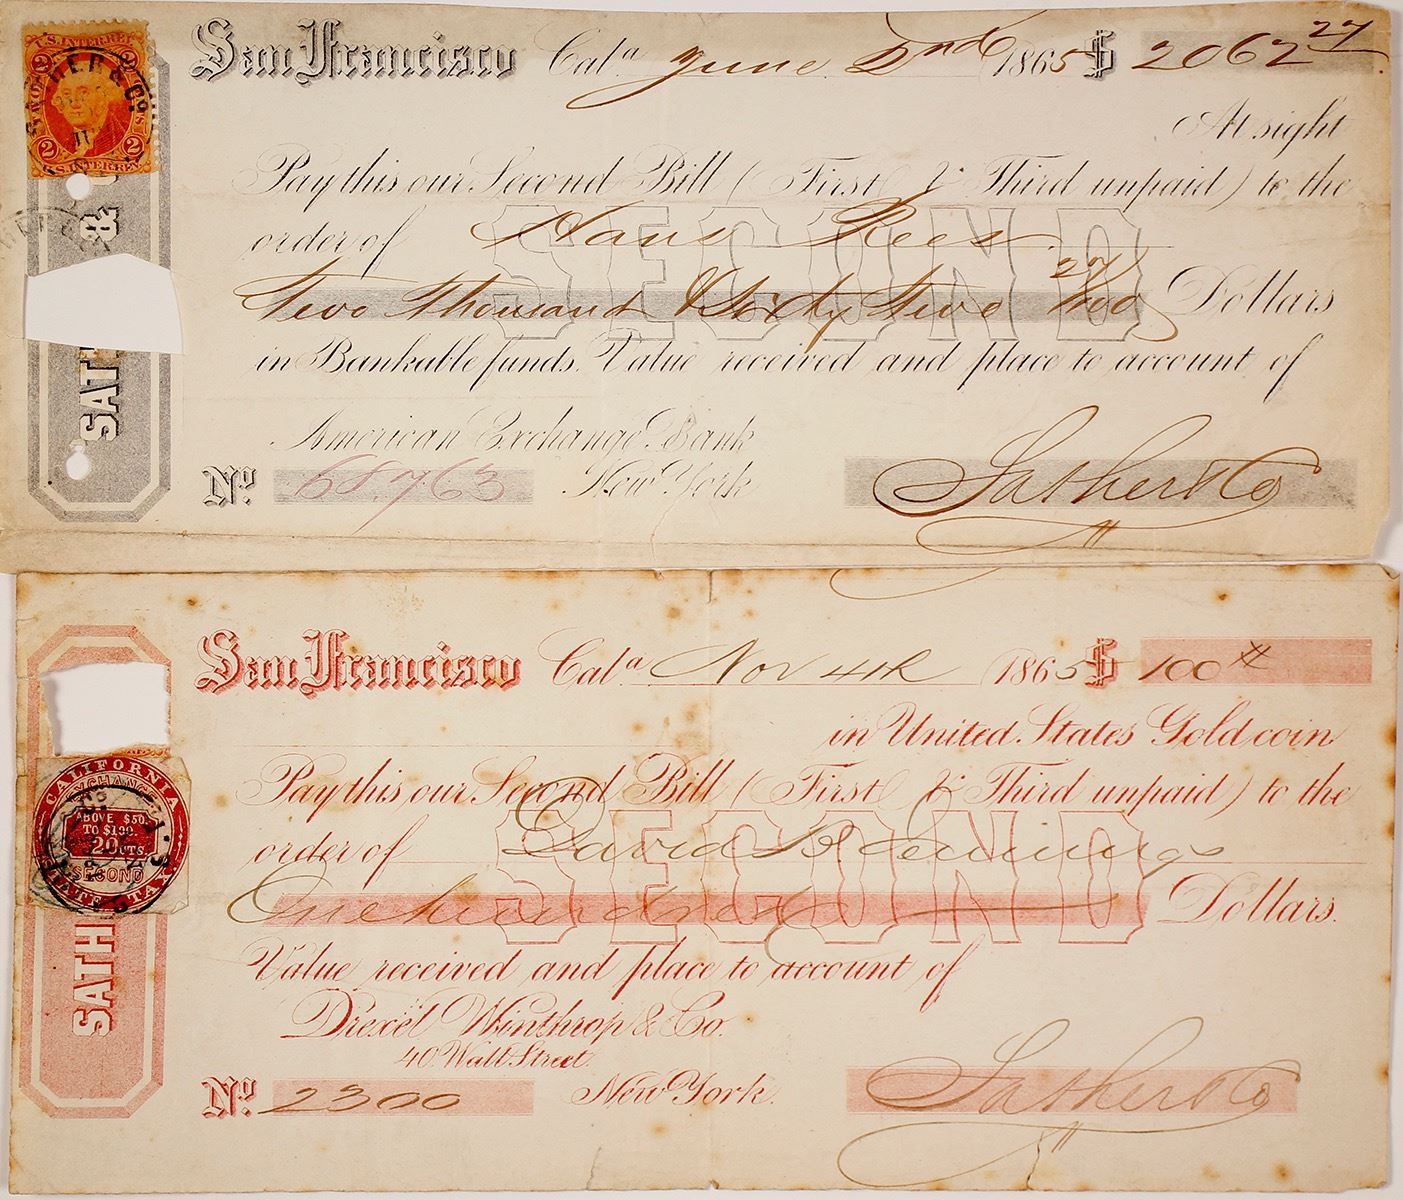 U.S. INTER. REV.
2 2
TWO CTS
2 2
U.S. INTER. REV.
SATHER & CO.
& 
SATH
San Francisco Cala. June 2nd 1865 $ 2062 27
At sight
Pay this our Second Bill (First & Third unpaid) to the
order of Hans Rees
SECOND
Two Thousand & Sixty Two 27/100 Dollars
in Bankable funds. Value received and place to account of
American Exchange Bank
No. 68.763 New York Sather & Co
San Francisco Cala. Nov 4th 1865 $ 100
in United States Gold coin
Pay this our Second Bill (First & Third unpaid) to the
order of David B Jennings
SECOND
One hundred Dollars.
Value received and place to account of
Drexel Winthrop & Co.
40 Wall Street.
No. 2300 New York. Sather & Co
CALIFORNIA
EXCHANGE
ABOVE $50.
TO $100.
20 CTS
SECOND
STATE TAX
SATH